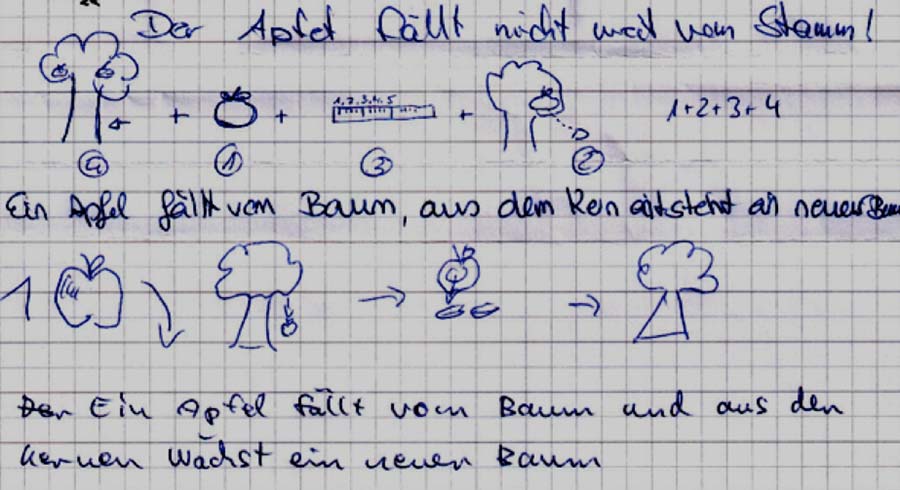 Der Apfel fällt nicht weit vom Stamm!
1 2 3 4 5
+ + + 1+2+3+4
4 1 3 2
Ein Apfel fällt vom Baum, aus dem Kern entsteht ein neuer Baum
1
Der Ein Apfel fällt vom Baum und aus den
kernen wächst ein neuer Baum